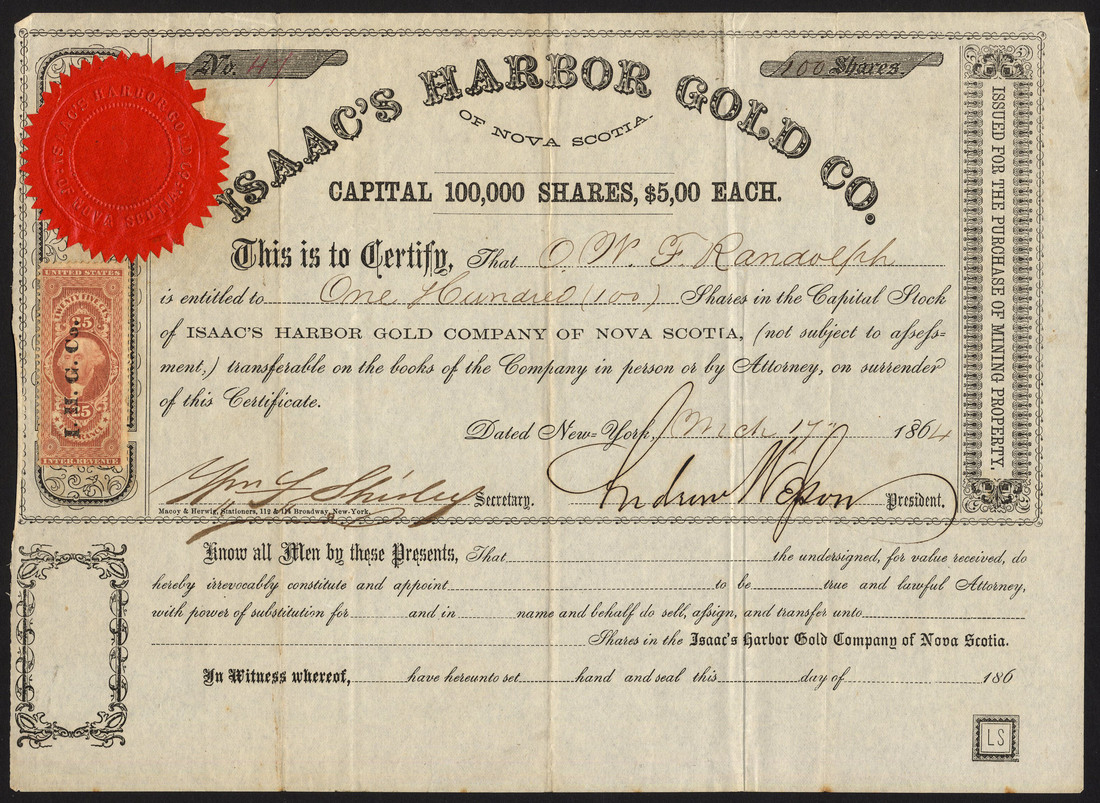 No. 41
100 Shares.
ISAAC'S HARBOR GOLD CO.
OF NOVA SCOTIA.
CAPITAL 100,000 SHARES, $5,00 EACH.
This is to Certify, That O. W. F. Randolph
is entitled to One Hundred (100) Shares in the Capital Stock
of ISAAC'S HARBOR GOLD COMPANY OF NOVA SCOTIA, (not subject to assess-
ment,) transferable on the books of the Company in person or by Attorney, on surrender
of this Certificate.
Dated New-York, Mch 17 1864
Wm Shirley Secretary. Andrew President.
Macoy & Herwig, Stationers, 112 & 114 Broadway, New-York.
ISSUED FOR THE PURCHASE OF MINING PROPERTY.
ISAAC'S HARBOR GOLD CO
UNITED STATES
TWENTY FIVE CTS
25
I. H. G. Co.
25
INTER. REVENUE
Know all Men by these Presents, That the undersigned, for value received, do
hereby irrevocably constitute and appoint to be true and lawful Attorney,
with power of substitution for and in name and behalf do sell, assign, and transfer unto
Shares in the Isaac's Harbor Gold Company of Nova Scotia.
In Witness whereof, have hereunto set hand and seal this day of 186
LS